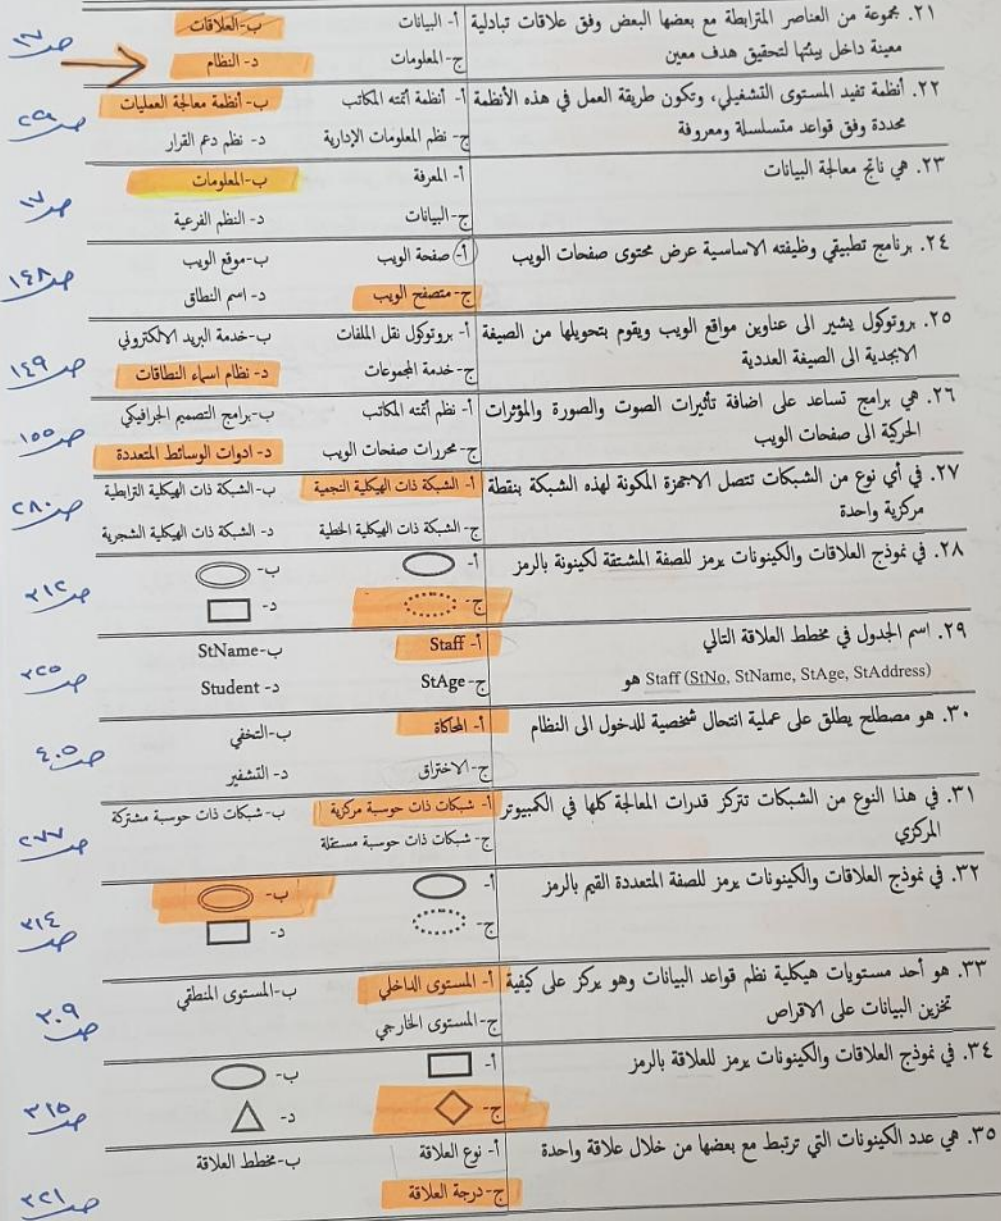 ٢١. مجموعة من العناصر المترابطة مع بعضها البعض وفق علاقات تبادلية أ- البيانات ب-العلاقات
معينة داخل بيئتها لتحقيق هدف معين ج- المعلومات د- النظام
صـ ١٧
٢٢. أنظمة تفيد المستوى التشغيلي، وتكون طريقة العمل في هذه الأنظمة أ- أنظمة أتمته المكاتب ب- أنظمة معالجة العمليات
محددة وفق قواعد متسلسلة ومعروفة ج- نظم المعلومات الإدارية د- نظم دعم القرار
صـ ٢٩
٢٣. هي ناتج معالجة البيانات أ- المعرفة ب-المعلومات
ج-البيانات د- النظم الفرعية
صـ ١٧
٢٤. برنامج تطبيقي وظيفته الاساسية عرض محتوى صفحات الويب أ- صفحة الويب ب-موقع الويب
ج-متصفح الويب د- اسم النطاق
صـ ١٤٨
٢٥. بروتوكول يشير الى عناوين مواقع الويب ويقوم بتحويلها من الصيغة أ- بروتوكول نقل الملفات ب-خدمة البريد الالكتروني
الابجدية الى الصيغة العددية ج-خدمة المجموعات د- نظام اسماء النطاقات
صـ ١٤٩
٢٦. هي برامج تساعد على اضافة تأثيرات الصوت والصورة والمؤثرات أ- نظم أتمته المكاتب ب-برامج التصميم الجرافيكي
الحركية الى صفحات الويب ج- محررات صفحات الويب د- ادوات الوسائط المتعددة
صـ ١٥٥
٢٧. في أي نوع من الشبكات تتصل الاجهزة المكونة لهذه الشبكة بنقطة أ- الشبكة ذات الهيكلية النجمية ب-الشبكة ذات الهيكلية الترابطية
مركزية واحدة ج- الشبكة ذات الهيكلية الخطية د- الشبكة ذات الهيكلية الشجرية
صـ ٢٨٠
٢٨. في نموذج العلاقات والكينونات يرمز للصفة المشتقة لكينونة بالرمز أ- ب-
ج- د-
صـ ٣١٢
٢٩. اسم الجدول في مخطط العلاقة التالي أ- Staff ب-StName
Staff (StNo, StName, StAge, StAddress) هو ج-StAge د- Student
صـ ٣٢٥
٣٠. هو مصطلح يطلق على عملية انتحال شخصية للدخول الى النظام أ- المحاكاة ب-التخفي
ج-الاختراق د- التشفير
صـ ٤٠٥
٣١. في هذا النوع من الشبكات تتركز قدرات المعالجة كلها في الكمبيوتر أ- شبكات ذات حوسبة مركزية ب-شبكات ذات حوسبة مشتركة
المركزي ج- شبكات ذات حوسبة مستقلة
صـ ٢٧٧
٣٢. في نموذج العلاقات والكينونات يرمز للصفة المتعددة القيم بالرمز أ- ب-
ج- د-
صـ ٣١٤
٣٣. هو أحد مستويات هيكلية نظم قواعد البيانات وهو يركز على كيفية أ- المستوى الداخلي ب-المستوى المنطقي
تخزين البيانات على الاقراص ج-المستوى الخارجي
صـ ٣٠٩
٣٤. في نموذج العلاقات والكينونات يرمز للعلاقة بالرمز أ- ب-
ج- د-
صـ ٣١٥
٣٥. هي عدد الكينونات التي ترتبط مع بعضها من خلال علاقة واحدة أ- نوع العلاقة ب-مخطط العلاقة
ج-درجة العلاقة
صـ ٣٢١